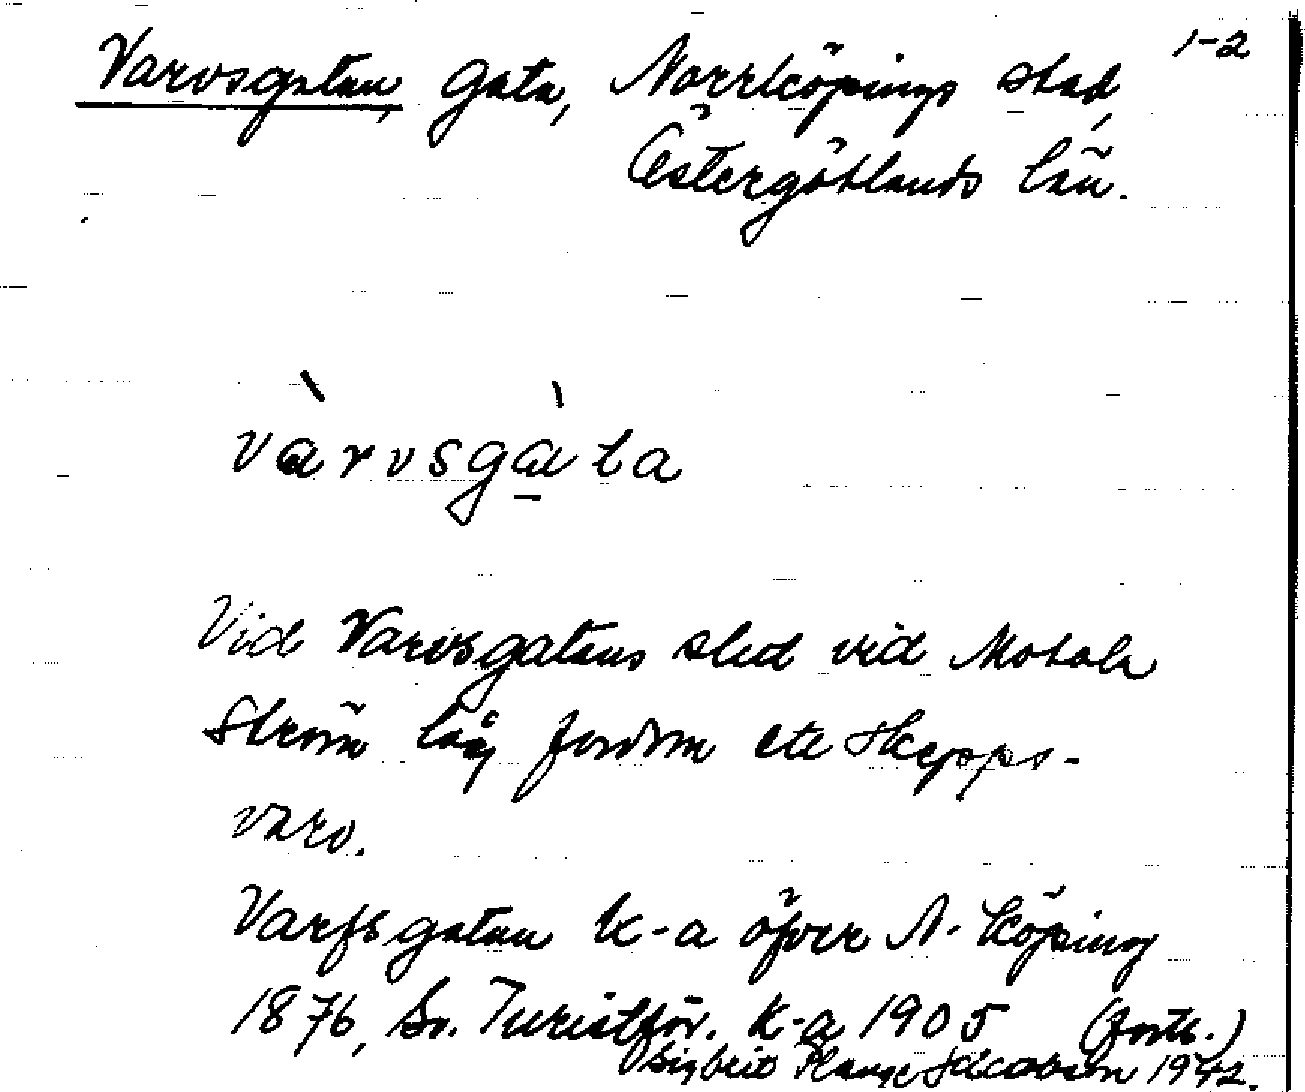 1-2
Varvsgatan, gata, Norrköpings stad,
Östergötlands län.
vàrvsgàta
Vid Varvsgatans slut vid Motala
Ström låg fordom ett skepps-
varv.
Varfsgatan K-a öfver N-köping
1876, Sv. Turistför. K-a 1905 (forts.)
Sigbrit Plange Jacobson 1942.